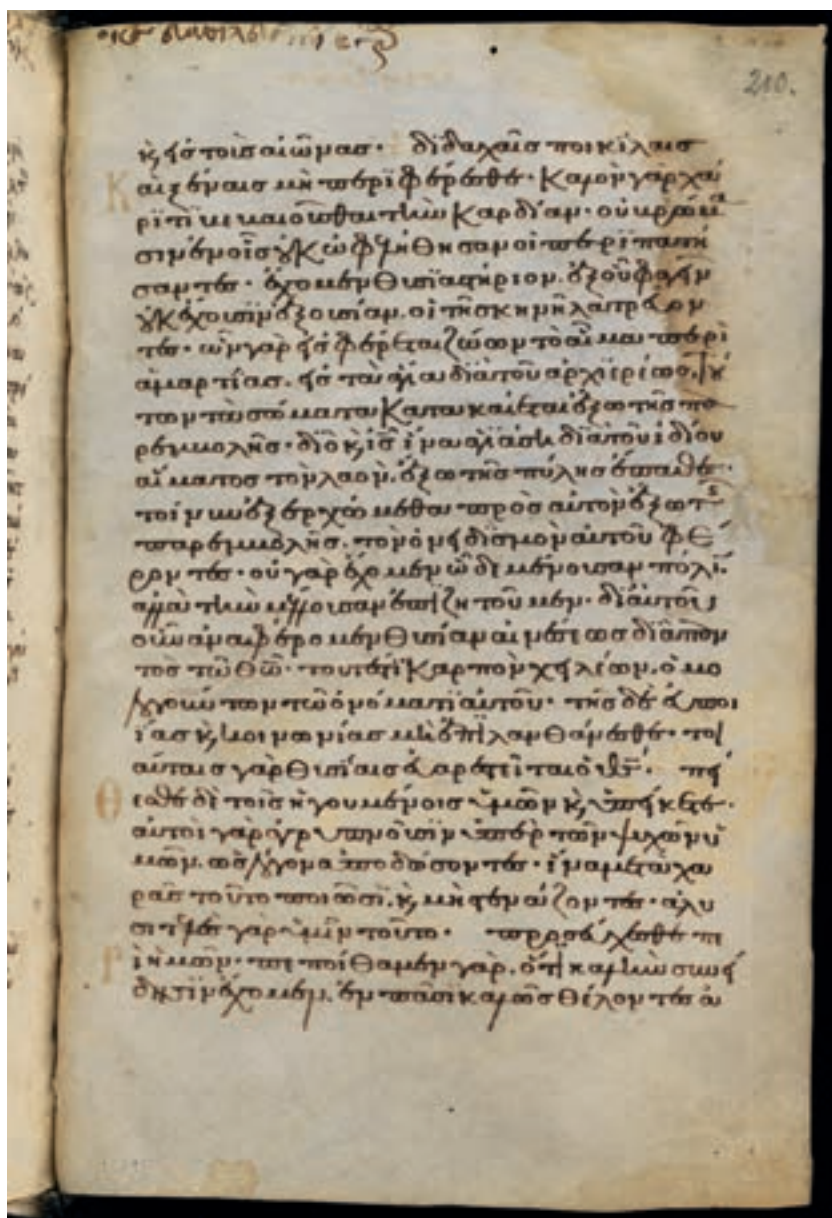 210.
ϗ εἰς τοὺς αἰῶνας· διδαχαῖς ποικίλαις
Καὶ ξέναις μὴ περιφέρεσθε· καλὸν γὰρ χά
ριτι βεβαιοῦσθαι τὴν καρδίαν· οὐ βρώμα
σιν ἐν οἷς οὐκ ὠφελήθησαν οἱ περιπατή
σαντες· ἔχομεν θυσιαστήριον. ἐξ οὗ φαγεῖν
οὐκ ἔχουσιν ἐξουσίαν. οἱ τῇ σκηνῇ λατρεύον
τες· ὧν γὰρ εἰσφέρεται ζώων τὸ αἷμα περὶ
ἁμαρτίας. εἰς τὰ ἅγια διὰ τοῦ ἀρχιερέως. τού
των τὰ σώματα κατακαίεται ἔξω τῆς πα
ρεμβολῆς· διὸ ϗ ις̅ ἵνα ἁγιάσῃ διὰ τοῦ ἰδίου
αἵματος τὸν λαὸν. ἔξω τῆς πύλης ἔπαθε·
τοίνυν ἐξερχώμεθα πρὸς αὐτὸν ἔξω τῆς
παρεμβολῆς. τὸν ὀνειδισμὸν αὐτοῦ φέ
ροντες· οὐ γὰρ ἔχομεν ὧδε μένουσαν πόλιν.
ἀλλὰ τὴν μέλλουσαν ἐπιζητοῦμεν· δι αὐτοῦ
οὖν ἀναφέρομεν θυσίαν αἰνέσεως διὰ παν
τὸς τῷ θῶ· τουτέστι καρπὸν χειλέων. ὁμο
λογούντων τῷ ὀνόματι αὐτοῦ· τῆς δὲ εὐποι
ΐας ϗ κοινωνίας μὴ ἐπιλανθάνεσθε· τοι
αύταις γὰρ θυσίαις εὐαρεστεῖται ὁ θς̅· πεί
Θεσθε δὲ τοῖς ἡγουμένοις ὑμῶν ϗ ὑπείκετε·
αὐτοὶ γὰρ ἀγρυπνοῦσιν ὑπὲρ τῶν ψυχῶν ὑ
μῶν. ὡς λόγον ἀποδώσοντες· ἵνα μετὰ χα
ρᾶς τοῦτο ποιῶσι. ϗ μὴ στενάζοντες· ἀλυ
σιτελὲς γὰρ ὑμῖν τοῦτο· προσεύχεσθε πε
Ρὶ ἡμῶν· πεποίθαμεν γὰρ. ὅτι καλὴν συνεί
δησιν ἔχομεν. ἐν πᾶσι καλῶς θέλοντες ἀ